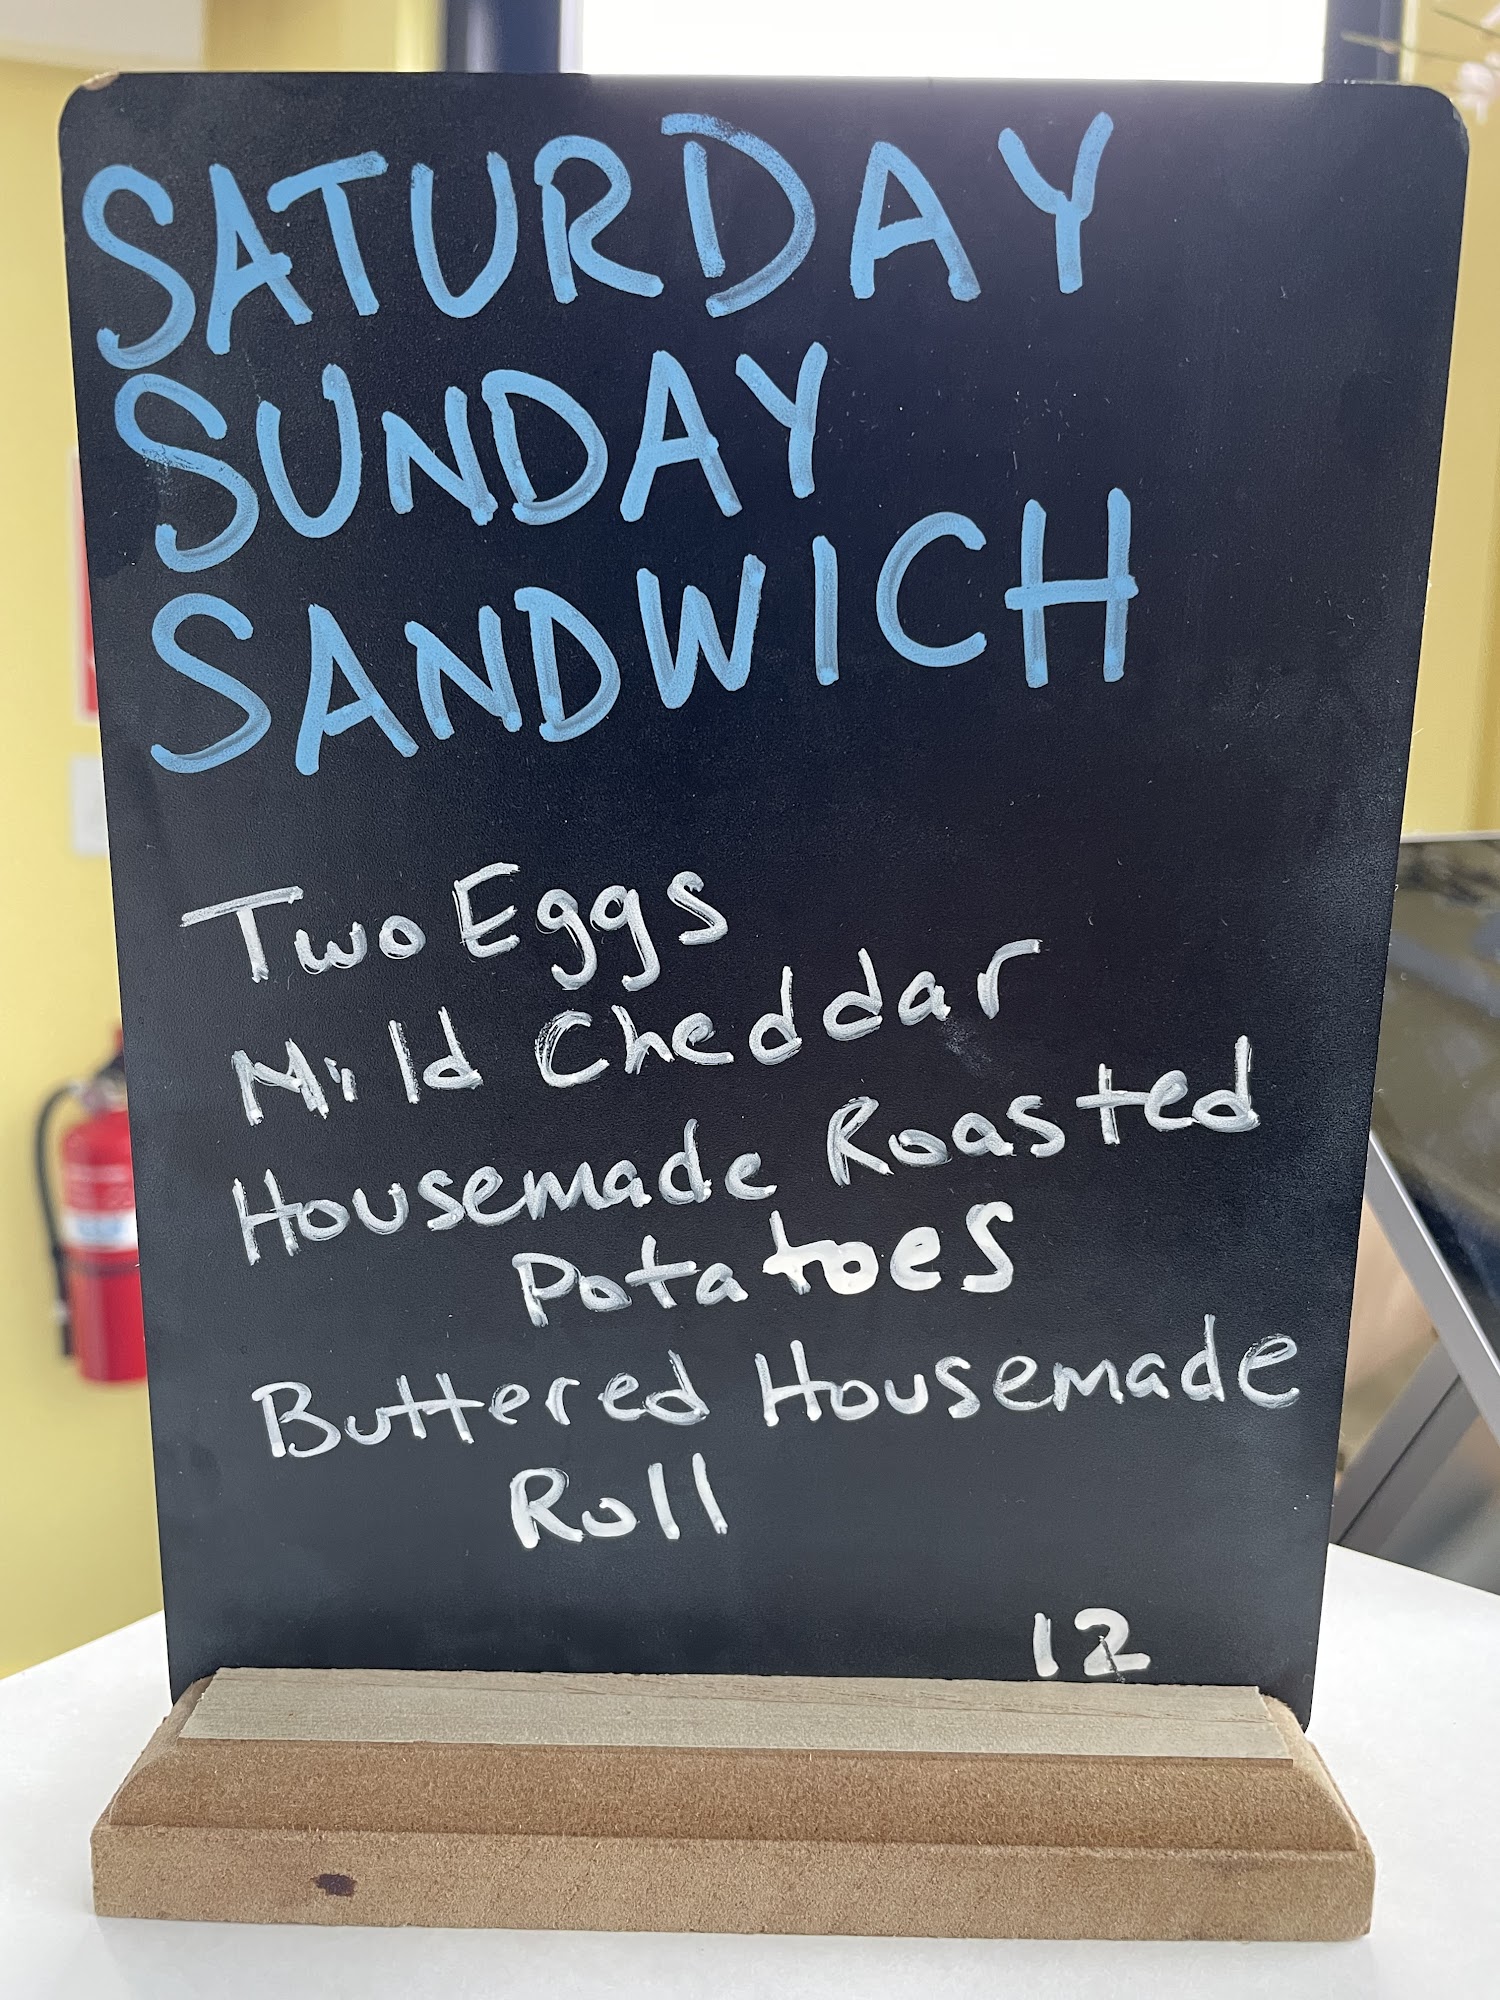 SATURDAY
SUNDAY
SANDWICH
Two Eggs
Mild Cheddar
Housemade Roasted
Potatoes
Buttered Housemade
Roll
12